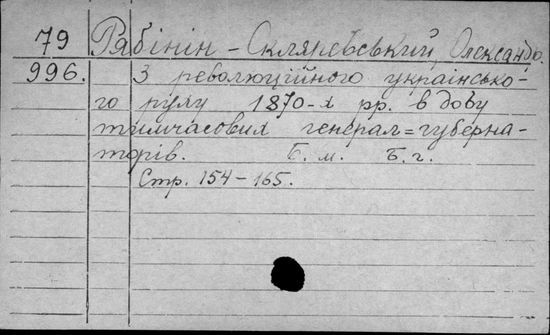 79 Рябінін-Скляревський, Олександр.
996. З революційного українсько-
го руху 1870-х рр. в добу
тимчасових генерал=губерна-
торів. Б. м. Б. г.
Стр. 154-165.